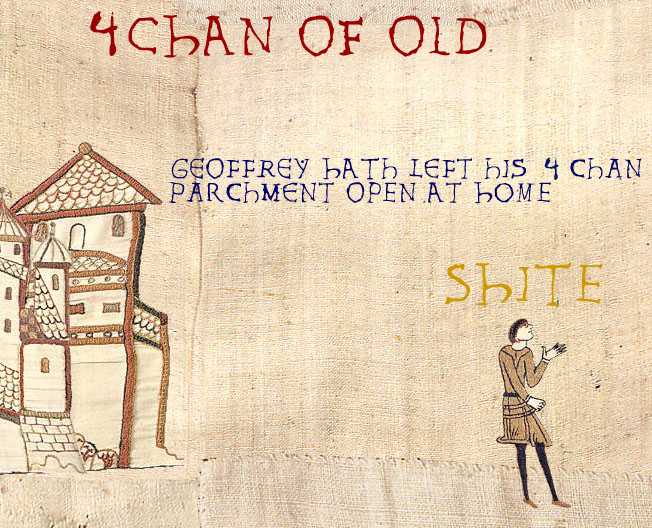 4chan of old
Geoffrey hath left his 4 chan
parchment open at home
Shite